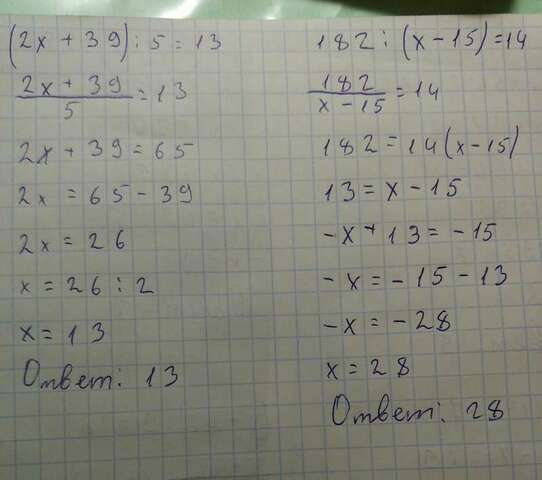 (2x + 39) : 5 = 13
2x + 39
5
= 13
2x + 39 = 65
2x = 65 - 39
2x = 26
x = 26 : 2
x = 13
Ответ: 13
182 : (x - 15) = 14
182
x - 15
= 14
182 = 14(x - 15)
13 = x - 15
-x + 13 = -15
-x = -15 - 13
-x = -28
x = 28
Ответ: 28